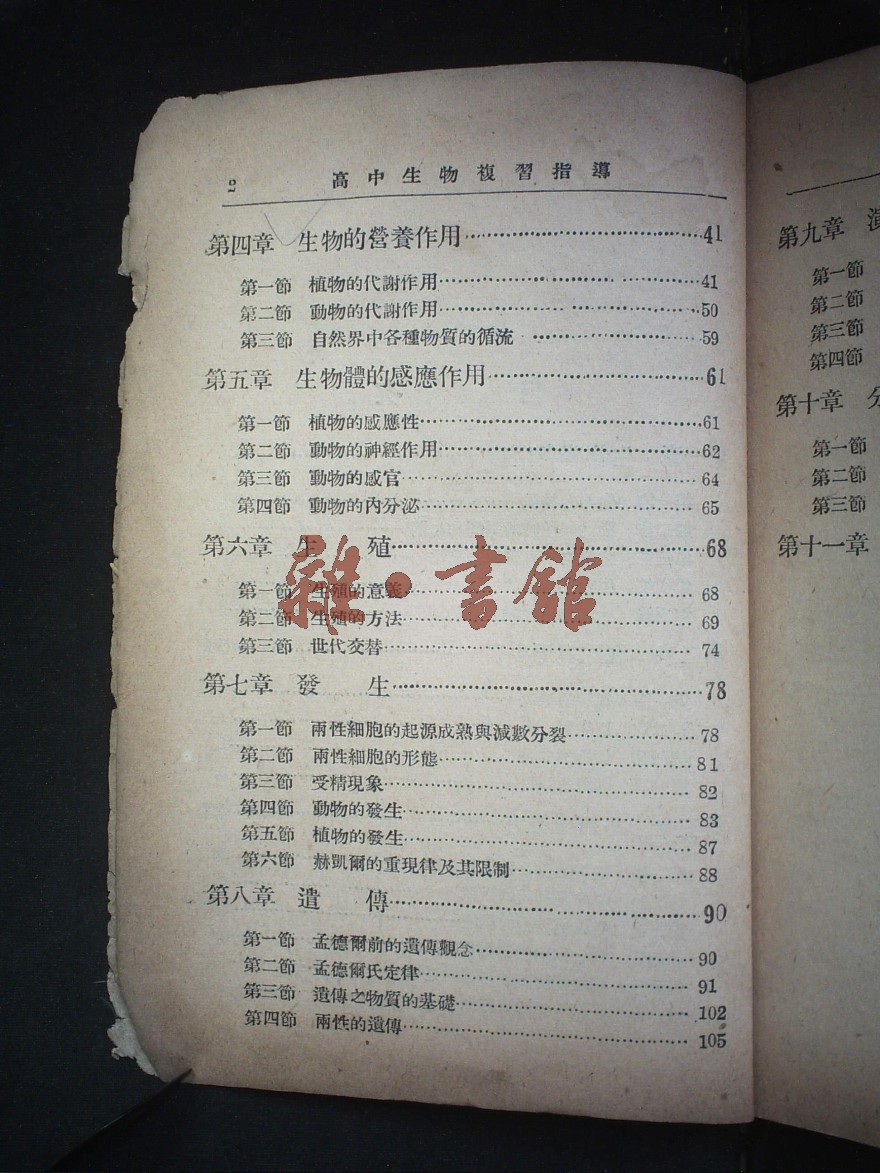 2 高中生物複習指導
第四章 生物的營養作用 41
第一節 植物的代謝作用 41
第二節 動物的代謝作用 50
第三節 自然界中各種物質的循流 59
第五章 生物體的感應作用 61
第一節 植物的感應性 61
第二節 動物的神經作用 62
第三節 動物的感官 64
第四節 動物的內分泌 65
第六章 生 殖 68
第一節 生殖的意義 68
第二節 生殖的方法 69
第三節 世代交替 74
第七章 發 生 78
第一節 兩性細胞的起源成熟與減數分裂 78
第二節 兩性細胞的形態 81
第三節 受精現象 82
第四節 動物的發生 83
第五節 植物的發生 87
第六節 赫凱爾的重現律及其限制 88
第八章 遺 傳 90
第一節 孟德爾前的遺傳觀念 90
第二節 孟德爾氏定律 91
第三節 遺傳之物質的基礎 102
第四節 兩性的遺傳 105
雜·書館
第九章
第一節
第二節
第三節
第四節
第十章
第一節
第二節
第三節
第十一章